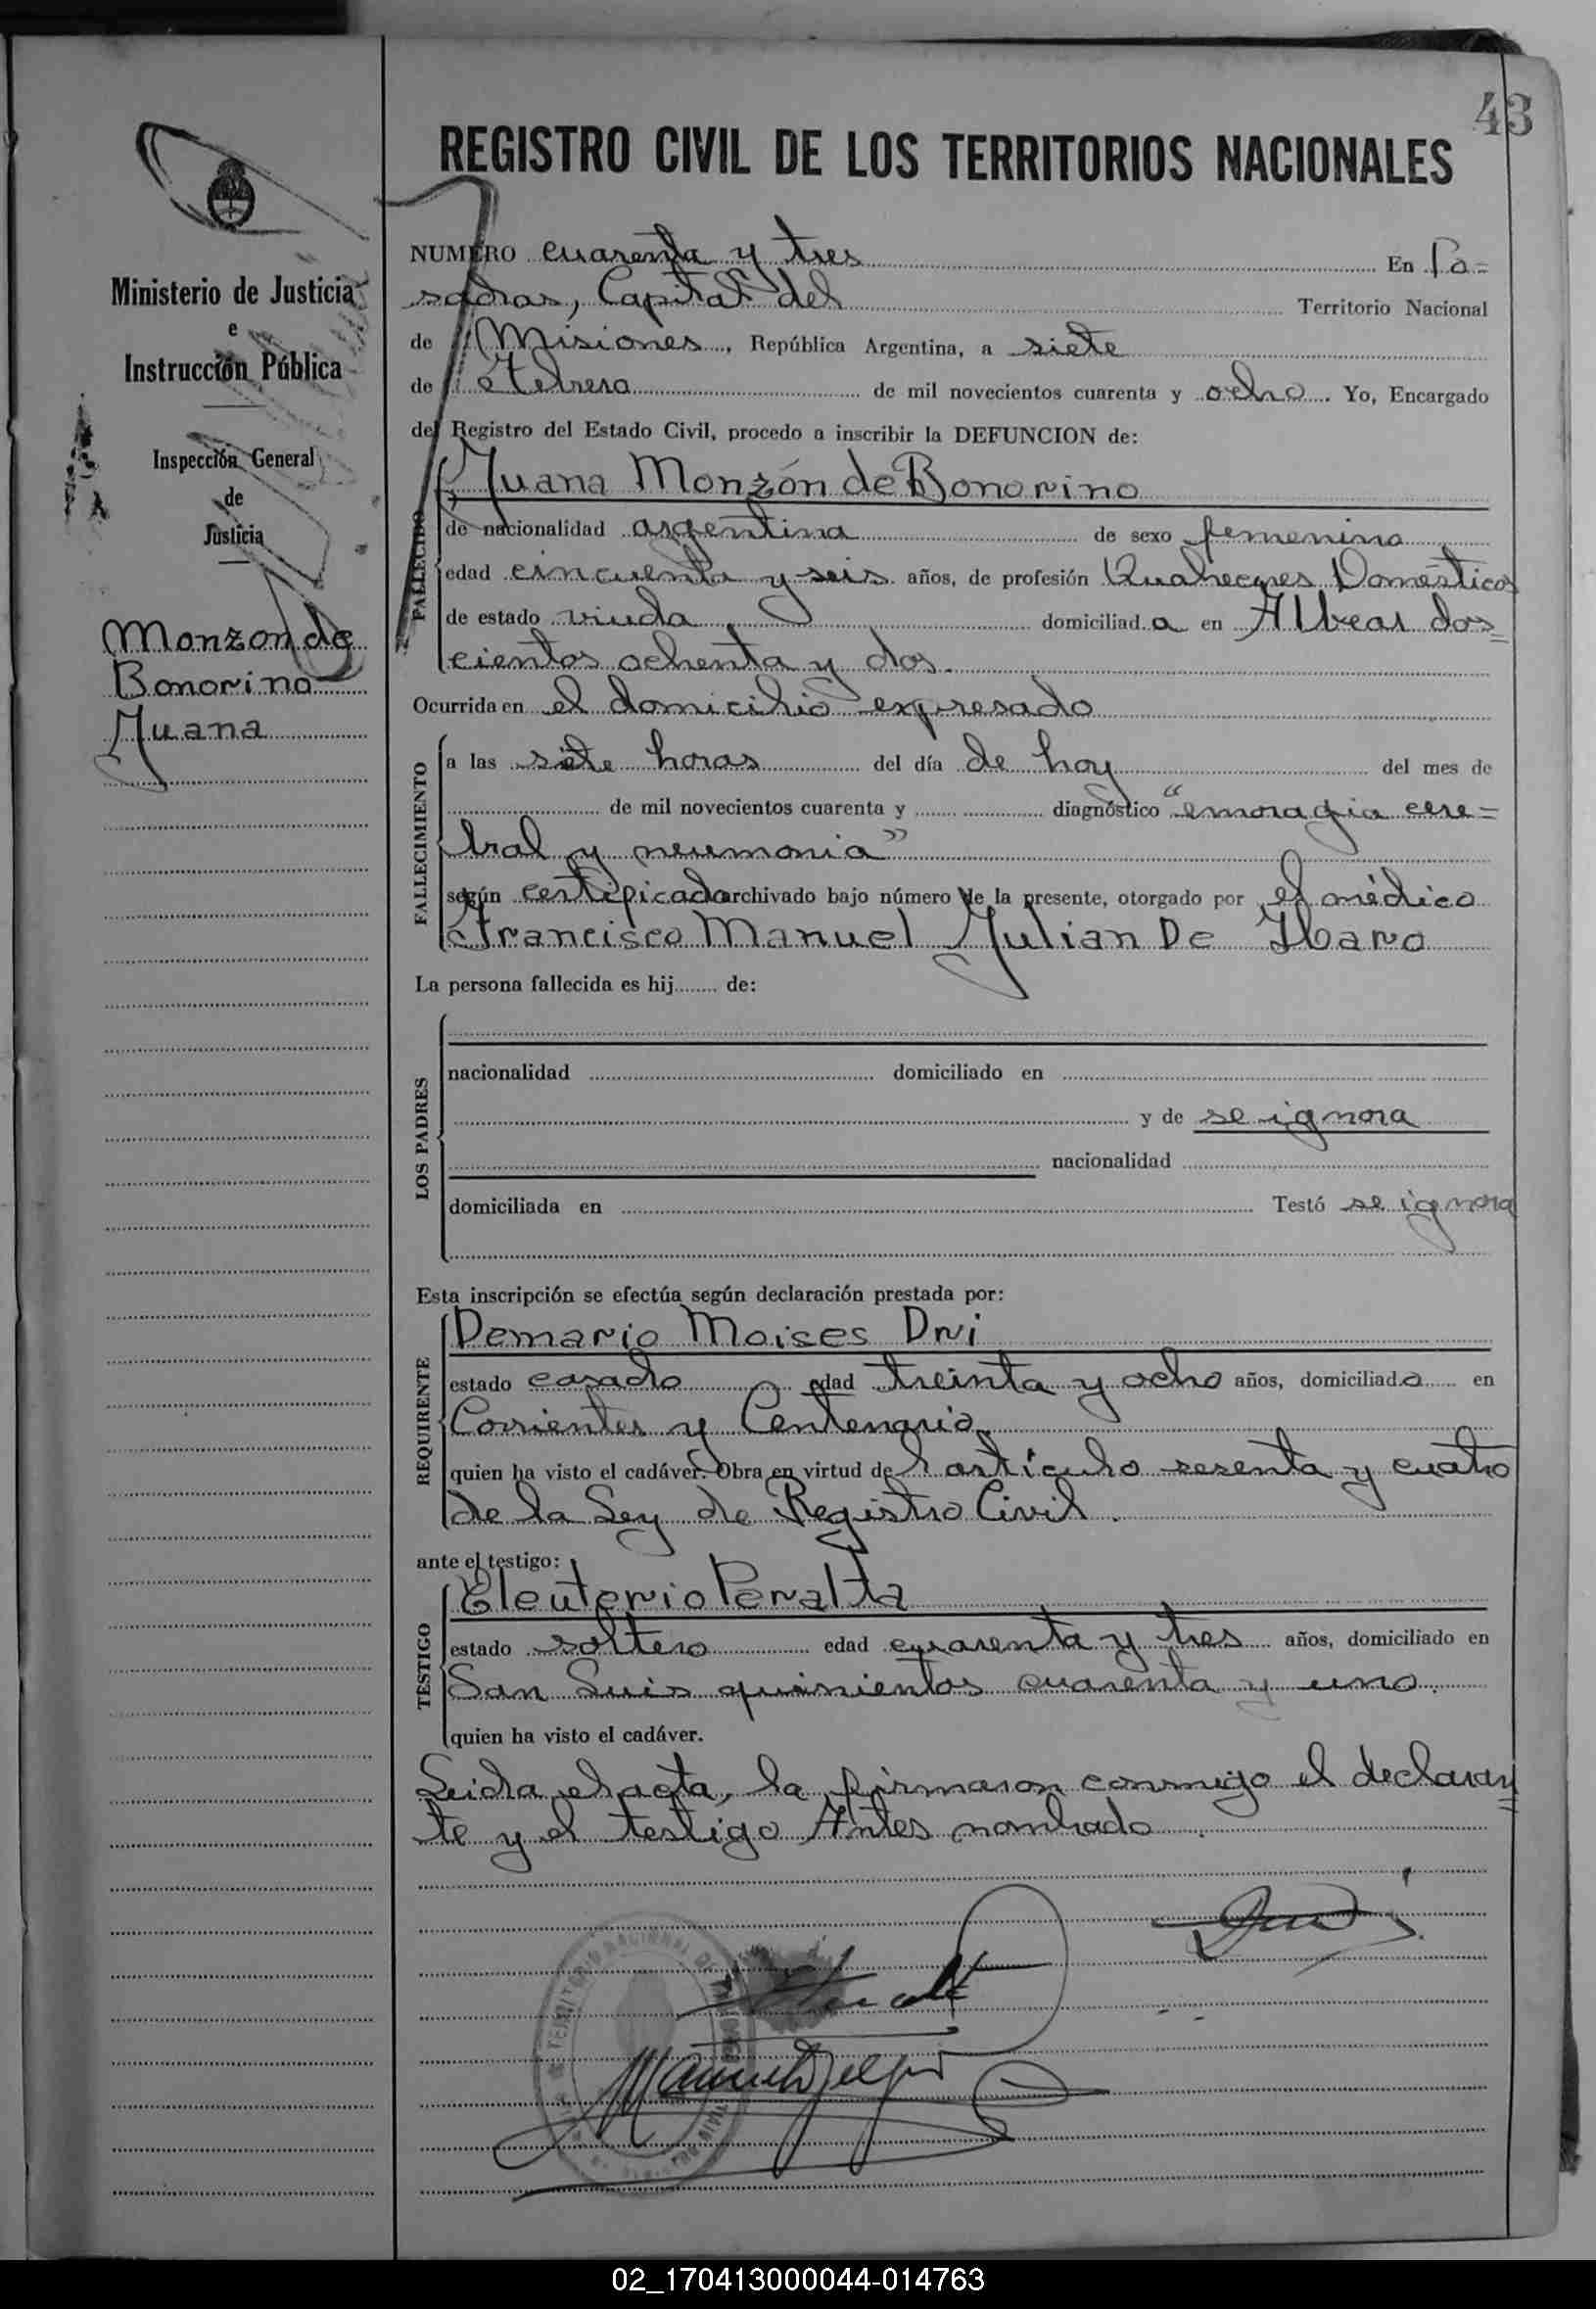 43
REGISTRO CIVIL DE LOS TERRITORIOS NACIONALES
Ministerio de Justicia
e
Instrucción Pública
Inspección General
de
Justicia
Monzon de
Bonorino
Juana
NUMERO cuarenta y tres En Po=
sadas, Capital del Territorio Nacional
de Misiones, República Argentina, a siete
de Febrero de mil novecientos cuarenta y ocho. Yo, Encargado
del Registro del Estado Civil, procedo a inscribir la DEFUNCION de:
FALLECIDO
Juana Monzón de Bonorino
de nacionalidad argentina de sexo femenino
edad cincuenta y seis años, de profesión Quaheceres Domésticos
de estado viuda domiciliada en Alvear dos=
cientos ochenta y dos.
Ocurrida en el domicilio expresado
FALLECIMIENTO
a las siete horas del día de hoy del mes de
de mil novecientos cuarenta y diagnóstico "emoragia cere=
bral y neumonia"
según certificado archivado bajo número de la presente, otorgado por el médico
Francisco Manuel Julian De Haro
La persona fallecida es hij de:
LOS PADRES
nacionalidad domiciliado en
y de se ignora
nacionalidad
domiciliada en Testó se ignora
Esta inscripción se efectúa según declaración prestada por:
REQUIRENTE
Demario Moises Dri
estado casado edad treinta y ocho años, domiciliado en
Corrientes y Centenario
quien ha visto el cadáver. Obra en virtud del artículo sesenta y cuatro
de la Ley de Registro Civil.
ante el testigo:
TESTIGO
Eleuterio Peralta
estado soltero edad cuarenta y tres años, domiciliado en
San Luis quinientos cuarenta y uno.
quien ha visto el cadáver.
Leida el acta, la firmaron conmigo el declaran=
te y el testigo Antes nombrado.
02_170413000044-014763